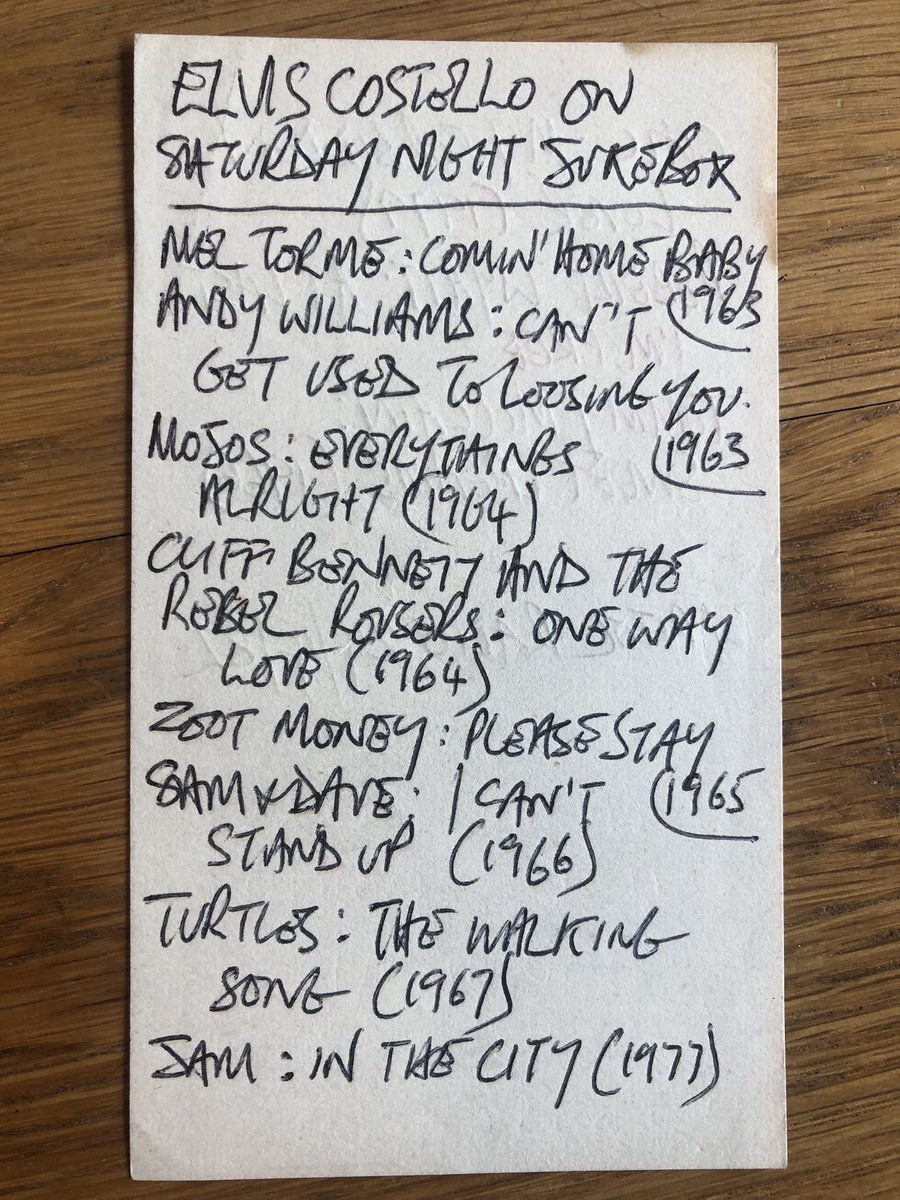 ELVIS COSTELLO ON
SATURDAY NIGHT JUKEBOX
MEL TORME: COMIN' HOME BABY
(1963
ANDY WILLIAMS: CAN'T
GET USED TO LOOSING YOU.
(1963
MOJOS: EVERYTHINGS
ALRIGHT (1964)
CLIFF BENNETT AND THE
REBEL ROUSERS: ONE WAY
LOVE (1964)
ZOOT MONEY: PLEASE STAY
(1965
SAM & DAVE: I CAN'T
STAND UP (1966)
TURTLES: THE WALKING
SONG (1967)
JAM: IN THE CITY (1977)